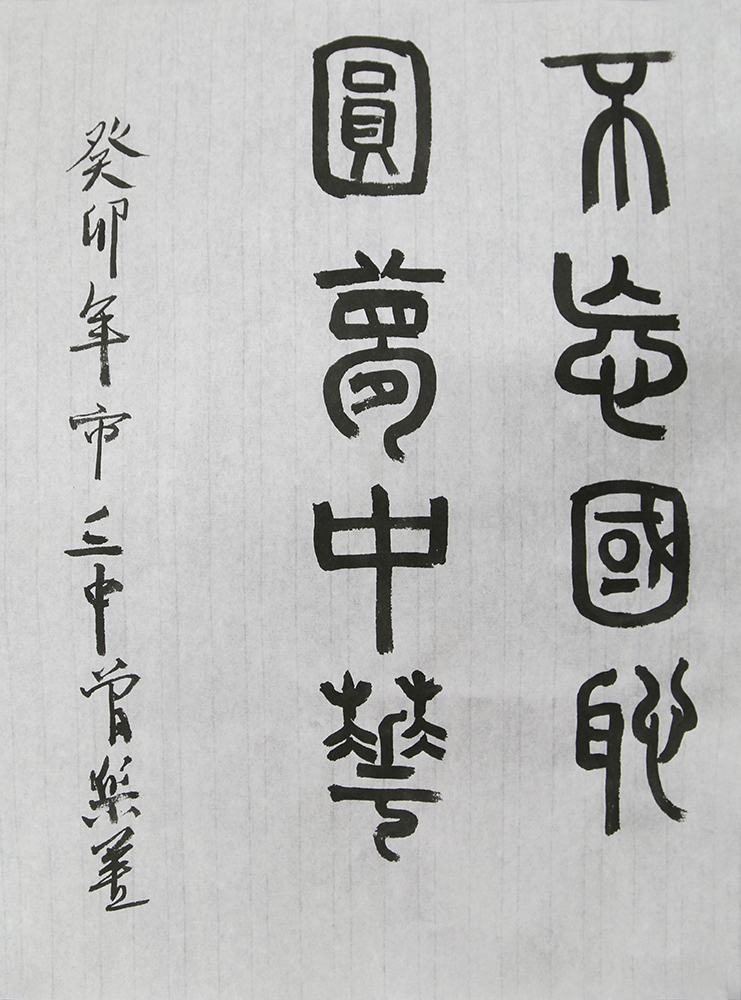 不忘國恥
圓夢中華
癸卯年市三中曾樂